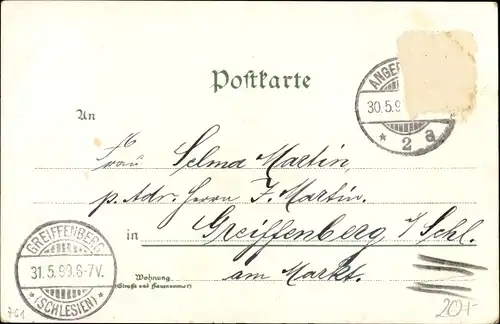 Postkarte
ANGER
30.5.9
* 2 a
An
Frau Selma Martin,
p. Adr. Herrn J. Martin.
in Greiffenberg i/Schl.
am Markt.
Wohnung
(Straße und Hausnummer)
GREIFFENBERG
31.5.99.6-7V.
* (SCHLESIEN) *
761
20,-